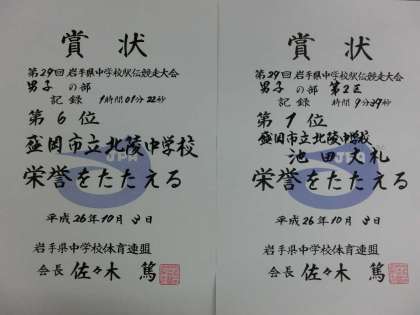 賞状
第29回岩手県中学校駅伝競走大会
男子の部
記録 1時間01分22秒
第6位
盛岡市立北陵中学校
栄誉をたたえる
平成26年10月3日
岩手県中学校体育連盟
会長 佐々木 篤
賞状
第29回岩手県中学校駅伝競走大会
男子の部 第2区
記録 時間9分39秒
第1位
盛岡市立北陵中学校
池田
栄誉をたたえる
平成26年10月3日
岩手県中学校体育連盟
会長 佐々木 篤